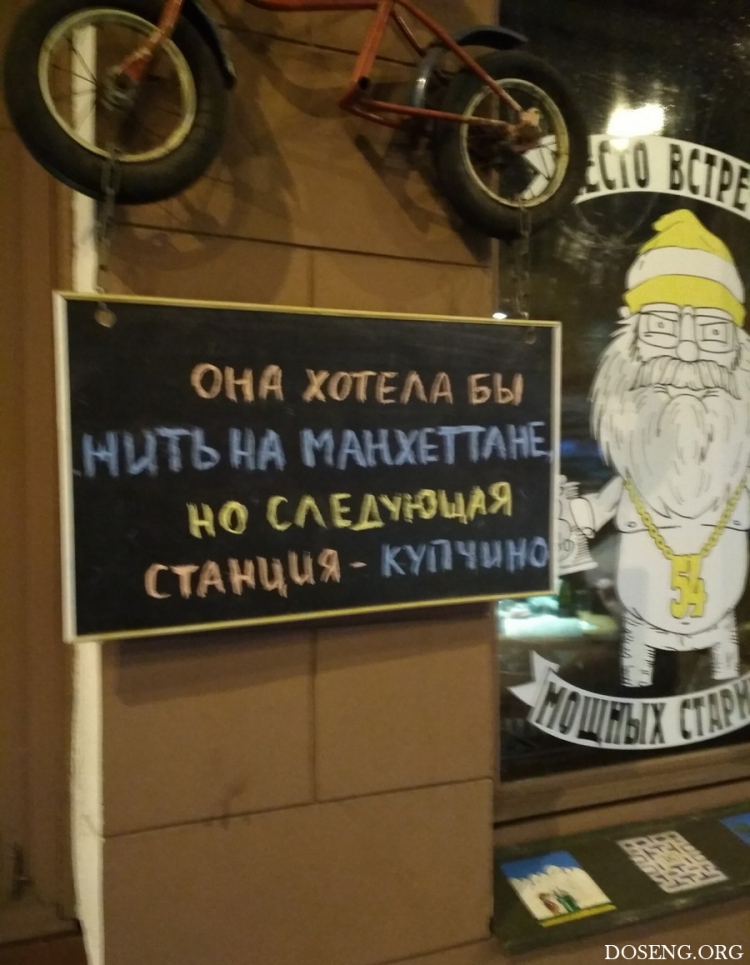 ОНА ХОТЕЛА БЫ
ЖИТЬ НА МАНХЕТТАНЕ,
НО СЛЕДУЮЩАЯ
СТАНЦИЯ - КУПЧИНО
ЕСТО ВСТРЕ
54
МОЩНЫХ СТАРИ
DOSENG.ORG